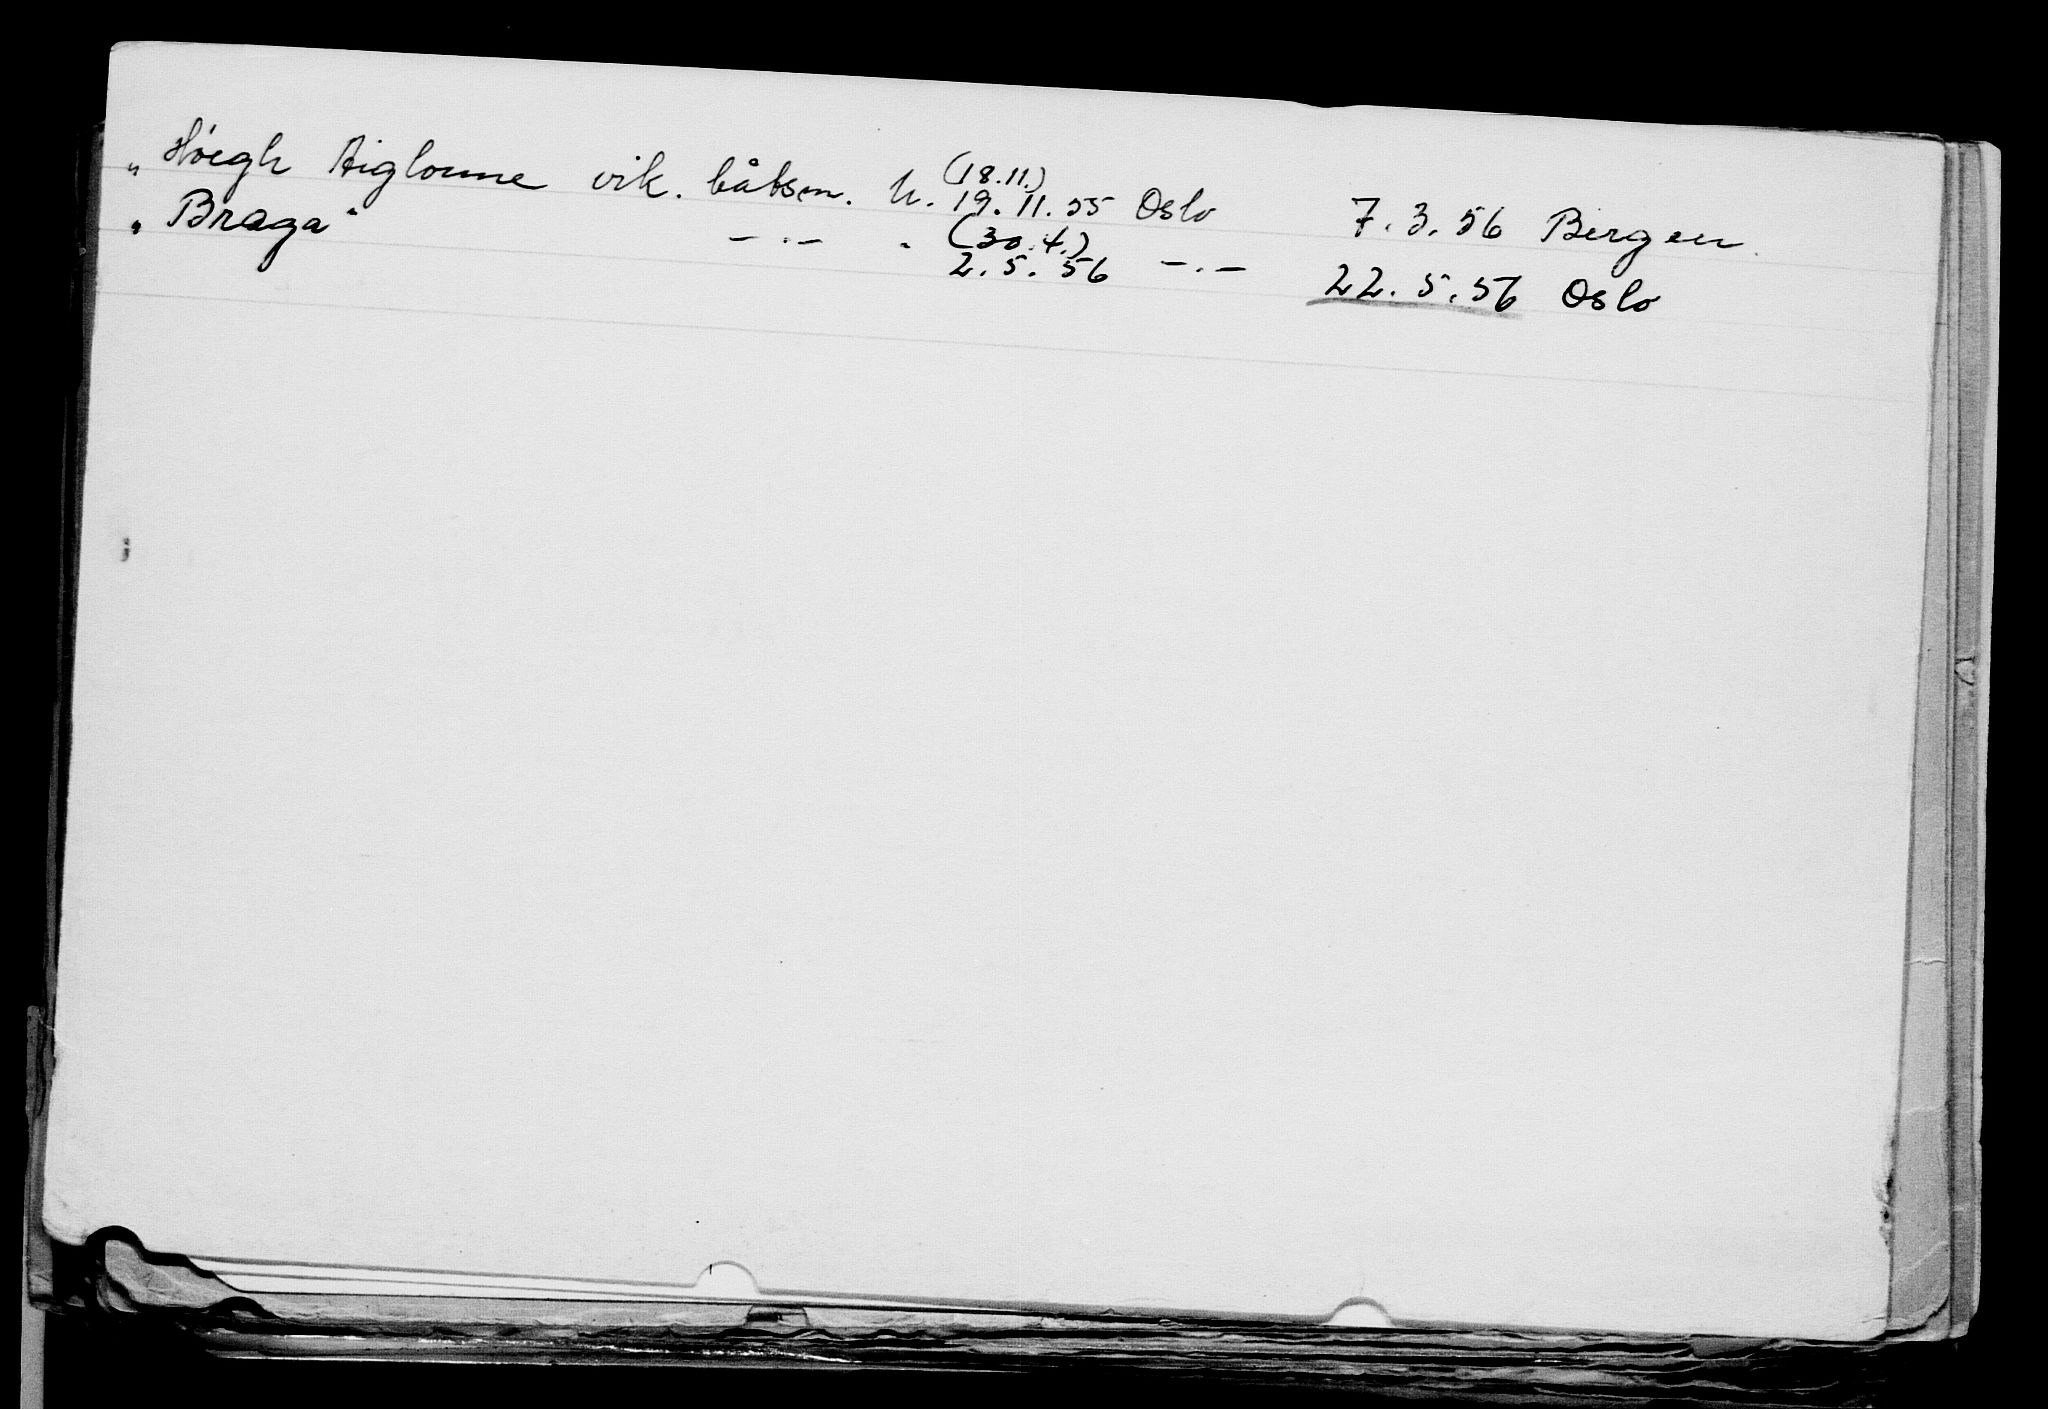 (18.11.)
„ Höegh Aiglonne vik. båtsm. h. 19.11.55 Oslo 7.3.56 Bergen.
(30.4.)
„ Braga" —.— . 2.5.56 —.— 22.5.56 Oslo